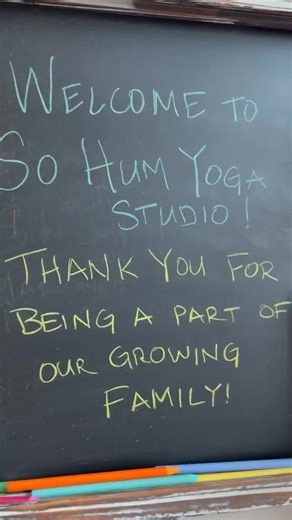 WELCOME TO
SO HUM YOGA
STUDIO!
THANK YOU FOR
BEING A PART OF
OUR GROWING
FAMILY!